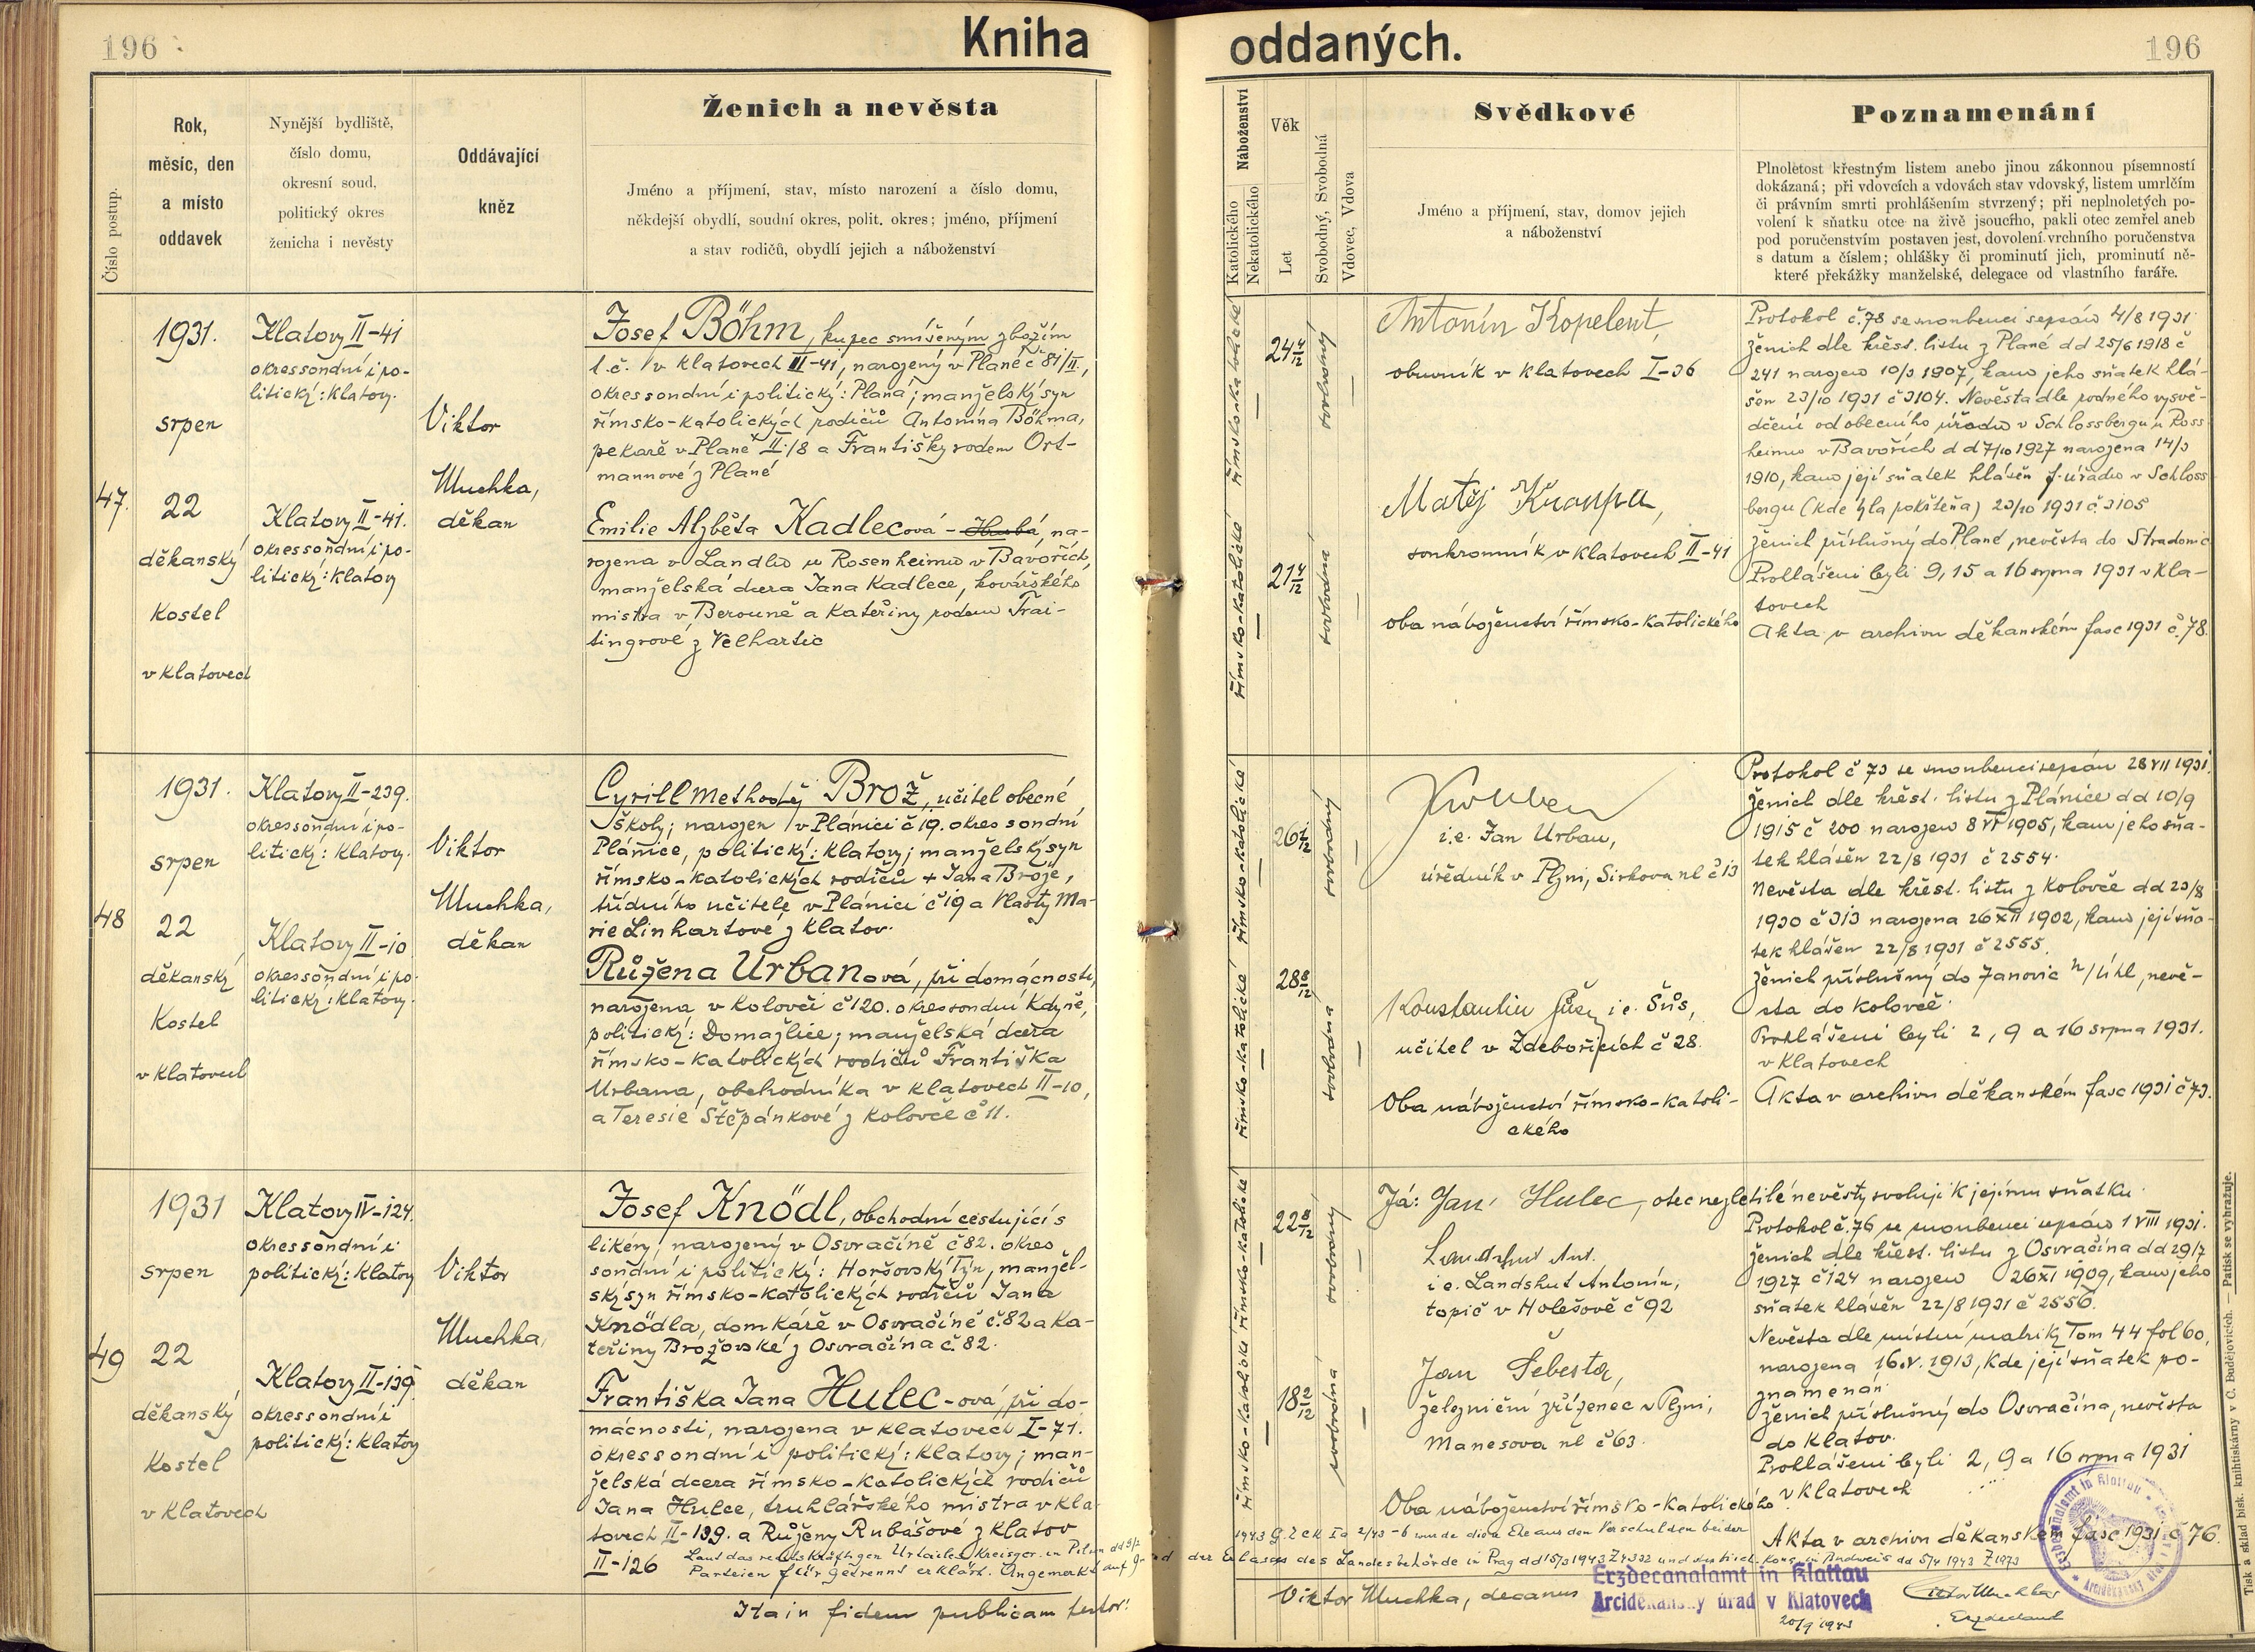 196
Kniha oddaných.
196
Číslo postup.
Rok,
měsíc, den
a místo
oddavek
Nynější bydliště,
číslo domu,
okresní soud,
politický okres
ženicha i nevěsty
Oddávající
kněz
Ženich a nevěsta
Jméno a příjmení, stav, místo narození a číslo domu,
někdejší obydlí, soudní okres, polit. okres; jméno, příjmení
a stav rodičů, obydlí jejich a náboženství
Náboženství
Katolického
Nekatolického
Věk
Let
Svobodný, Svobodná
Vdovec, Vdova
Svědkové
Jméno a příjmení, stav, domov jejich
a náboženství
Poznamenání
Plnoletost křestným listem anebo jinou zákonnou písemností
dokázaná; při vdovcích a vdovách stav vdovský, listem umrlčím
či právním smrti prohlášením stvrzený; při neplnoletých po-
volení k sňatku otce na živě jsoucího, pakli otec zemřel aneb
pod poručenstvím postaven jest, dovolení vrchního poručenstva
s datum a číslem; ohlášky či prominutí jich, prominutí ně-
které překážky manželské, delegace od vlastního faráře.
47.
1931.
srpen
22
děkanský
kostel
v Klatovech
Klatovy II-41
okres soudní i po-
litický: Klatovy.
Klatovy II-41.
okres soudní i po-
litický: Klatovy
Viktor
Muchka,
děkan
Josef Böhm, kupec smíšeným zbožím
t.č. v Klatovech III-41, narozený v Plané č 81/II,
okres soudní i politický: Planá; manželský syn
římsko-katolických rodičů Antonína Böhma,
pekaře v Plané II/8 a Františky rodem Ort-
mannové z Plané
Emilie Alzběta Kadlecová - na-
rozena v Landlu u Rosenheimu v Bavořích,
manželská dcera Jana Kadlece, kovářského
mistra v Berouně a Kateřiny rodem Trai-
tingrové z Velhartic
římsko-katolické
24 4/12
svobodný
římsko-katolické
21 4/12
svobodná
Antonín Kopelent,
obuvník v Klatovech I-36
Matěj Kroupa,
soukromník v Klatovech II-41
oba náboženství římsko-katolického
Protokol č.78 se snoubenci sepsán 4/8 1931
Ženich dle křest. listu z Plané dd 25/6 1918 č
241 narozen 10/3 1907, kam jeho sňatek hlá-
šen 23/10 1931 č 3104. Nevěsta dle rodného vysvě-
dčení od obecního úřadu v Schlossbergu u Ross
heimu v Bavořích dd 7/10 1927 narozena 14/3
1910, kam její sňatek hlášen f. úřadu v Schloss
bergu (kde byla pokřtěna) 23/10 1931 č. 3105
Ženich příslušný do Plané, nevěsta do Stradonic
Prohlášeni byli 9, 15 a 16 srpna 1931 v Kla-
tovech
Akta v archivu děkanském fasc 1931 č. 78.
48
1931.
srpen
22
děkanský
Kostel
v Klatovech
Klatovy II-239.
okres soudní i po-
litický: Klatovy.
Klatovy II-10
okres soudní i po-
litický: Klatovy.
Viktor
Muchka,
děkan
Cyrill Methoděj Brož, učitel obecné
školy; narozen v Plánici č 19. okres soudní
Plánice, politický: Klatovy; manželský syn
římsko-katolických rodičů + Jana Brože,
třídního učitele v Plánici č 19 a Vlasty Ma-
rie Linhartové z Klatov.
Růžena Urbanová, při domácnosti,
narozena v Kolovči č 120. okres soudní Kdyně,
politický: Domažlice; manželská dcera
římsko-katolických rodičů Františka
Urbana, obchodníka v Klatovech II-10,
a Teresie Štěpánkové z Kolovče č 11.
římsko-katolické
26 2/12
svobodný
římsko-katolické
28 8/12
svobodná
i.e. Jan Urban,
úředník v Plzni, Sirkova ul č 13
Konstantin Šůs, i.e. Šůs,
učitel v Zdebořicích č 28.
Oba náboženství římsko-katoli-
ckého
Protokol č 73 se snoubenci sepsán 28 VII 1931.
Ženich dle křest. listu z Plánice dd 10/9
1915 č 200 narozen 8 VI 1905, kam jeho sňa-
tek hlášen 22/8 1931 č 2554.
Nevěsta dle křest. listu z Kolovče dd 23/8
1930 č 313 narozena 26 XII 1902, kam její sňa-
tek hlášen 22/8 1931 č 2555.
Ženich příslušný do Janovic n/Úhl, nevě-
sta do Kolovče.
Prohlášeni byli 2, 9 a 16 srpna 1931.
v Klatovech
Akta v archivu děkanském fasc 1931 č 73.
49
1931
srpen
22
děkanský
Kostel
v Klatovech
Klatovy IV-124.
okres soudní i
politický: Klatovy
Klatovy II-139
okres soudní i
politický: Klatovy
Viktor
Muchka,
děkan
Josef Knödl, obchodní cestující s
likéry, narozený v Osvračíně č 82. okres
soudní i politický: Horšovský Týn, manžel-
ský syn římsko-katolických rodičů Jana
Knödla, domkáře v Osvračíně č. 82 a Ka-
teřiny Brožovské z Osvračína č. 82.
Františka Jana Hulec-ová, při do-
mácnosti, narozena v Klatovech I-71.
okres soudní i politický: Klatovy; man-
želská dcera římsko-katolických rodičů
Jana Hulce, truhlářského mistra v Kla-
tovech II-139. a Růženy Rubášové z Klatov
II-126
římsko-katolické
22 8/12
svobodný
římsko-katolické
18 2/12
svobodná
Já: Jan Hulec, otec nezletilé nevěsty svoluji k jejímu sňatku.
Landshut Ant.
i.e. Landshut Antonín,
topič v Holešově č 92
Jan Šebesta,
železniční zřízenec v Plzni,
Manesova ul č 63.
Oba náboženství římsko-katolického
Protokol č. 76 se snoubenci sepsán 1 VIII 1931.
Ženich dle křest. listu z Osvračína dd 29/7
1927 č 124 narozen 26 XI 1909, kam jeho
sňatek hlášen 22/8 1931 č 2556.
Nevěsta dle místní matriky Tom 44 fol 60,
narozena 16.V. 1913, kde její sňatek po-
znamenán.
Ženich příslušný do Osvračína, nevěsta
do Klatov.
Prohlášeni byli 2, 9 a 16 srpna 1931
v Klatovech
Akta v archivu děkanském fasc 1931 č 76.
Laut das rechtskräftigen Urteiles Kreisger. in Pilsen dd 9/2
1943 g. Z Ck Ia 2/43-6 wurde diese Ehe aus dem Verschulden beider
Parteien für getrennt erklärt. Angemerkt auf Grund der Erlasses des Landesbehörde in Prag dd 15/3 1943 Z 4332 und des bisch. Kons. in Budweis dd 5/4 1943 Z 1973
Ita in fidem publicam testor:
Viktor Muchka, decanus
Erzdecanalamt in Klattau
Arciděkanský úrad v Klatovech
20/9 1943
Viktor Muchka
Erzdechant
Erzdecanalamt in Klattau
Tisk a sklad bisk. knihtiskárny v Č. Budějovicích. — Patisk se vyhražuje.